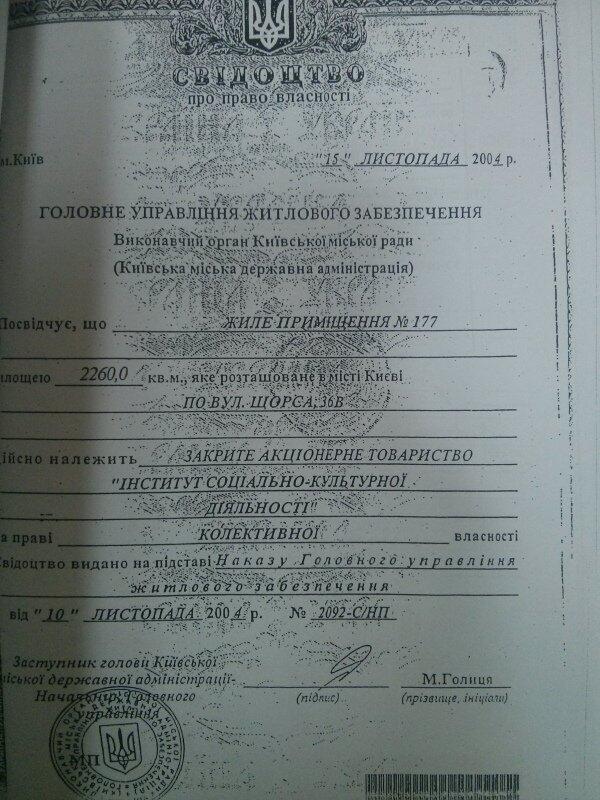 СВІДОЦТВО
про право власності
м.Київ "15" ЛИСТОПАДА 2004 р.
ГОЛОВНЕ УПРАВЛІННЯ ЖИТЛОВОГО ЗАБЕЗПЕЧЕННЯ
Виконавчий орган Київської міської ради
(Київська міська державна адміністрація)
Посвідчує, що ЖИЛЕ ПРИМІЩЕННЯ № 177
площею 2260,0 кв.м., яке розташоване в місті Києві
ПО ВУЛ. ЩОРСА, 36В
дійсно належить ЗАКРИТЕ АКЦІОНЕРНЕ ТОВАРИСТВО
"ІНСТИТУТ СОЦІАЛЬНО-КУЛЬТУРНОЇ
ДІЯЛЬНОСТІ"
на праві КОЛЕКТИВНОЇ власності
Свідоцтво видано на підставі Наказу Головного управління
житлового забезпечення
від "10" ЛИСТОПАДА 2004 р. № 2092-С/НП
Заступник голови Київської
міської державної адміністрації-
Начальник Головного
управління
(підпис) М.Голиця
(прізвище, ініціали)
МП